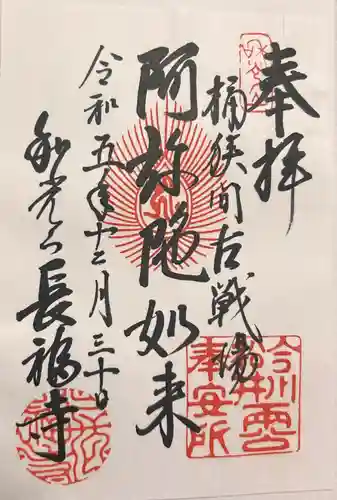 奉拝
桶狭間古戦場
阿弥陀如来
令和五年十二月三十日
和光山
長福寺
今川
奉安所